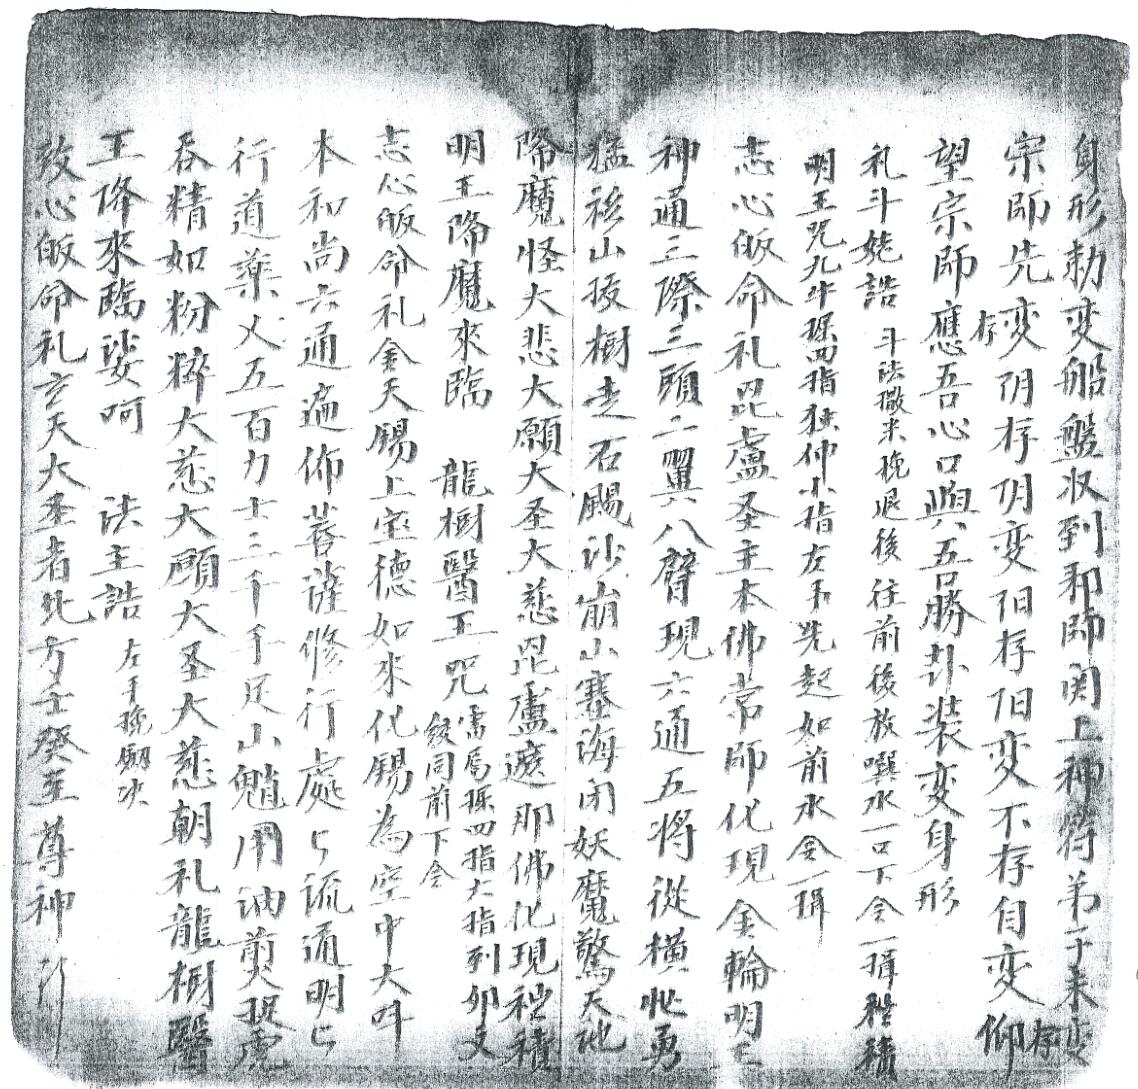 身形勅变船盤収到和師関上神符弟子未变
宗師先变阴存阴变阳存阳变不存自变存仰
望宗師存應吾心口與五昌勝卦装变身形
礼斗姥誥 斗法撒米挽退後往前後放噀水一口下令一揖
明王咒九牛 四指 小指左手先起如前水令一揖
志心皈命礼毘盧圣主本佛常師化現金輪明王
神通三際三頭二翼八臂現六通五将從横 勇
猛移山拔樹走石颺沙崩山塞海闭妖魔驚天地
降魔怪大悲大願大圣大慈毘盧遮那佛化現穢積
明王降魔來臨 龍樹醫王咒 四指大指列卯文 同前下令
志心皈命礼金天赐上宝德如來化赐為空中大叫
木和尚六通遍佈菩薩修行處々流通明々
行道藥义五百力士三千手足山魈用 前 虎
吞精如粉粹大慈大願大圣大慈朝礼龍樹醫
王降來臨娑呵 法主誥 左手挽 決
致心皈命礼玄天大圣者北方壬癸至尊神